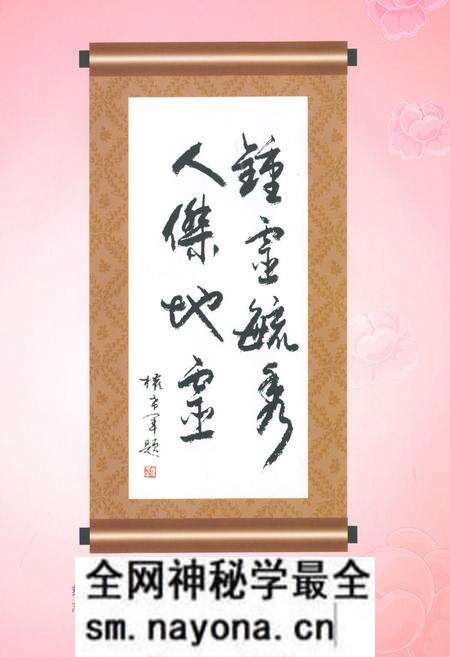 鍾靈毓秀
人傑地靈
全网神秘学最全
sm.nayona.cn